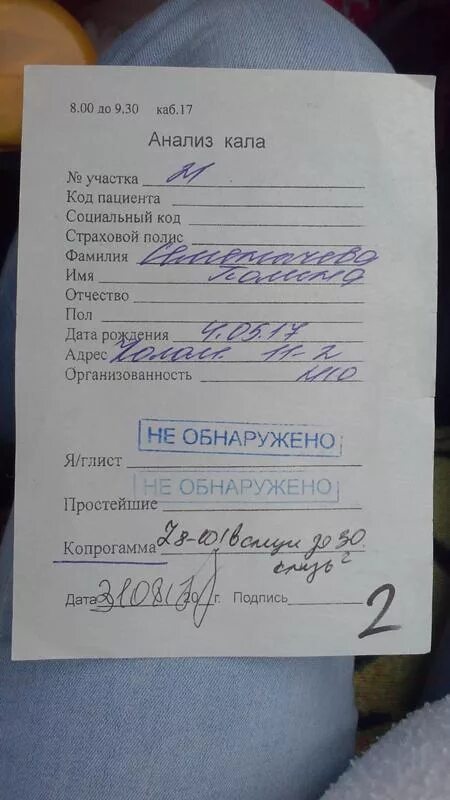 8.00 до 9.30 каб.17
Анализ кала
№ участка 21
Код пациента
Социальный код
Страховой полис
Фамилия
Имя Полина
Отчество
Пол
Дата рождения 4.05.17
Адрес 11-2
Организованность н/о
НЕ ОБНАРУЖЕНО
Я/глист
НЕ ОБНАРУЖЕНО
Простейшие
Копрограмма 8-10 в слизи до 30
слизь
Дата 310817 20 г. Подпись
2